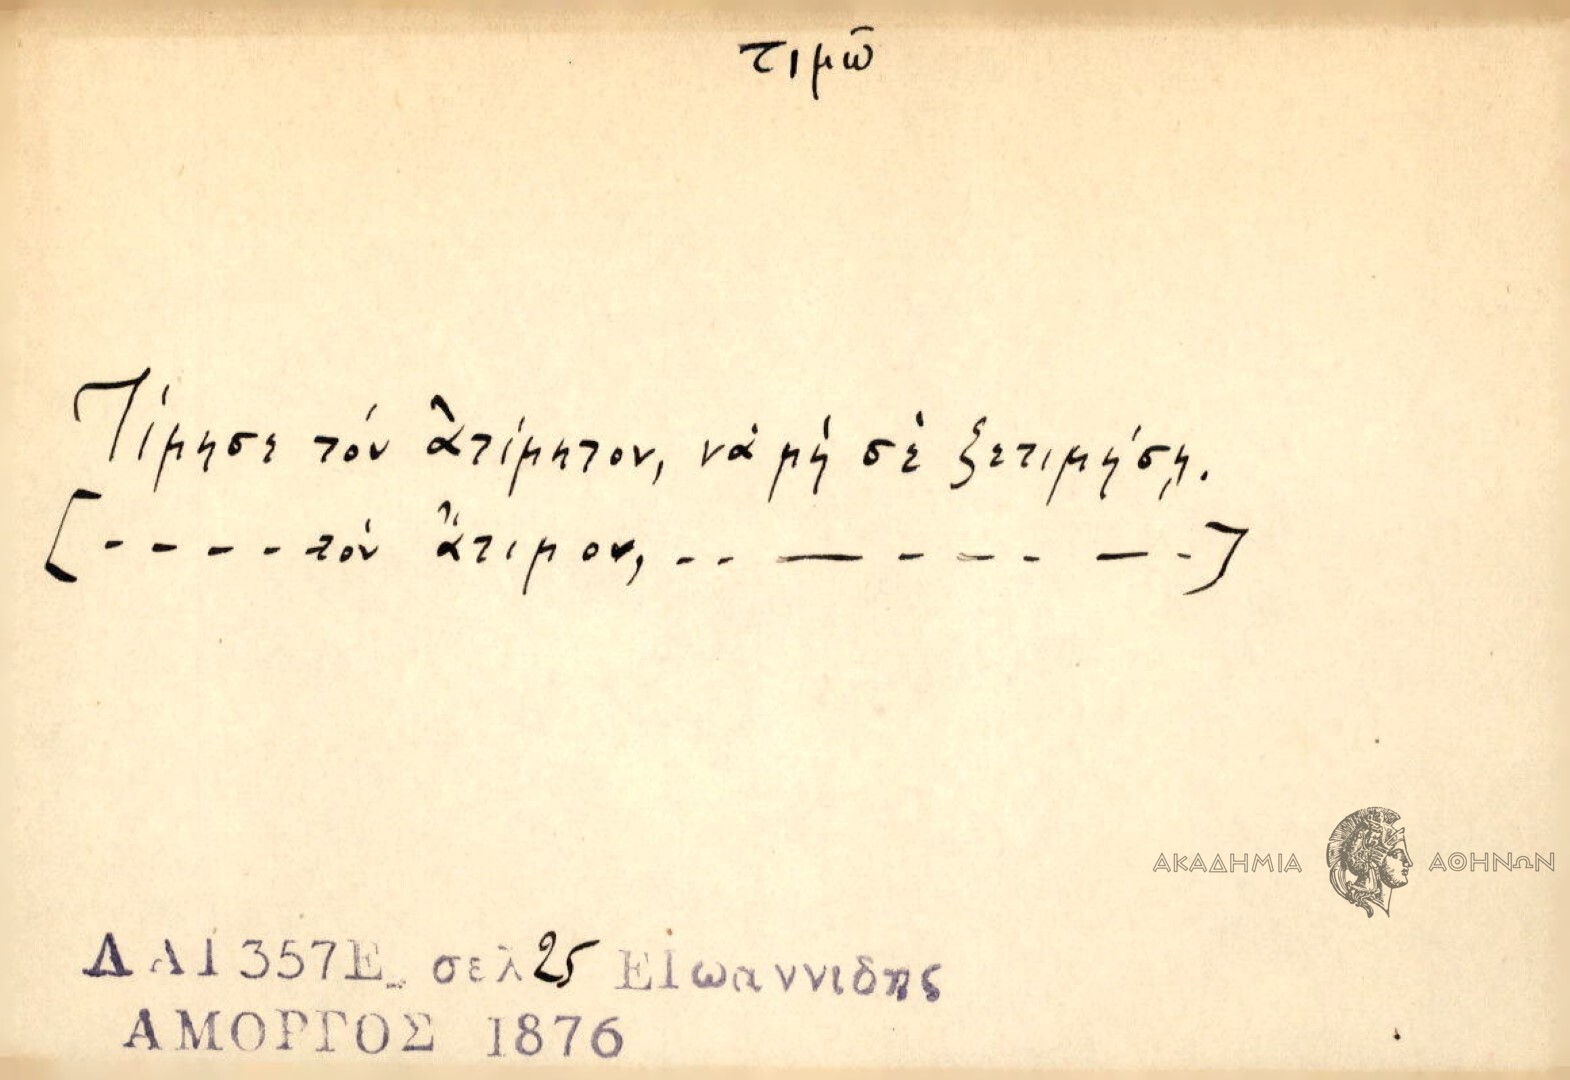 τιμῶ
Τίμησε τόν ἀτίμητον, νά μή σέ ξετιμήσῃ.
[- - - - τόν ἄτιμον, - - — - - - — -]
ΑΚΑΔΗΜΙΑ ΑΘΗΝΩΝ
ΔΑ1357Ε σελ 25 ΕΙωαννιδης
ΑΜΟΡΓΟΣ 1876